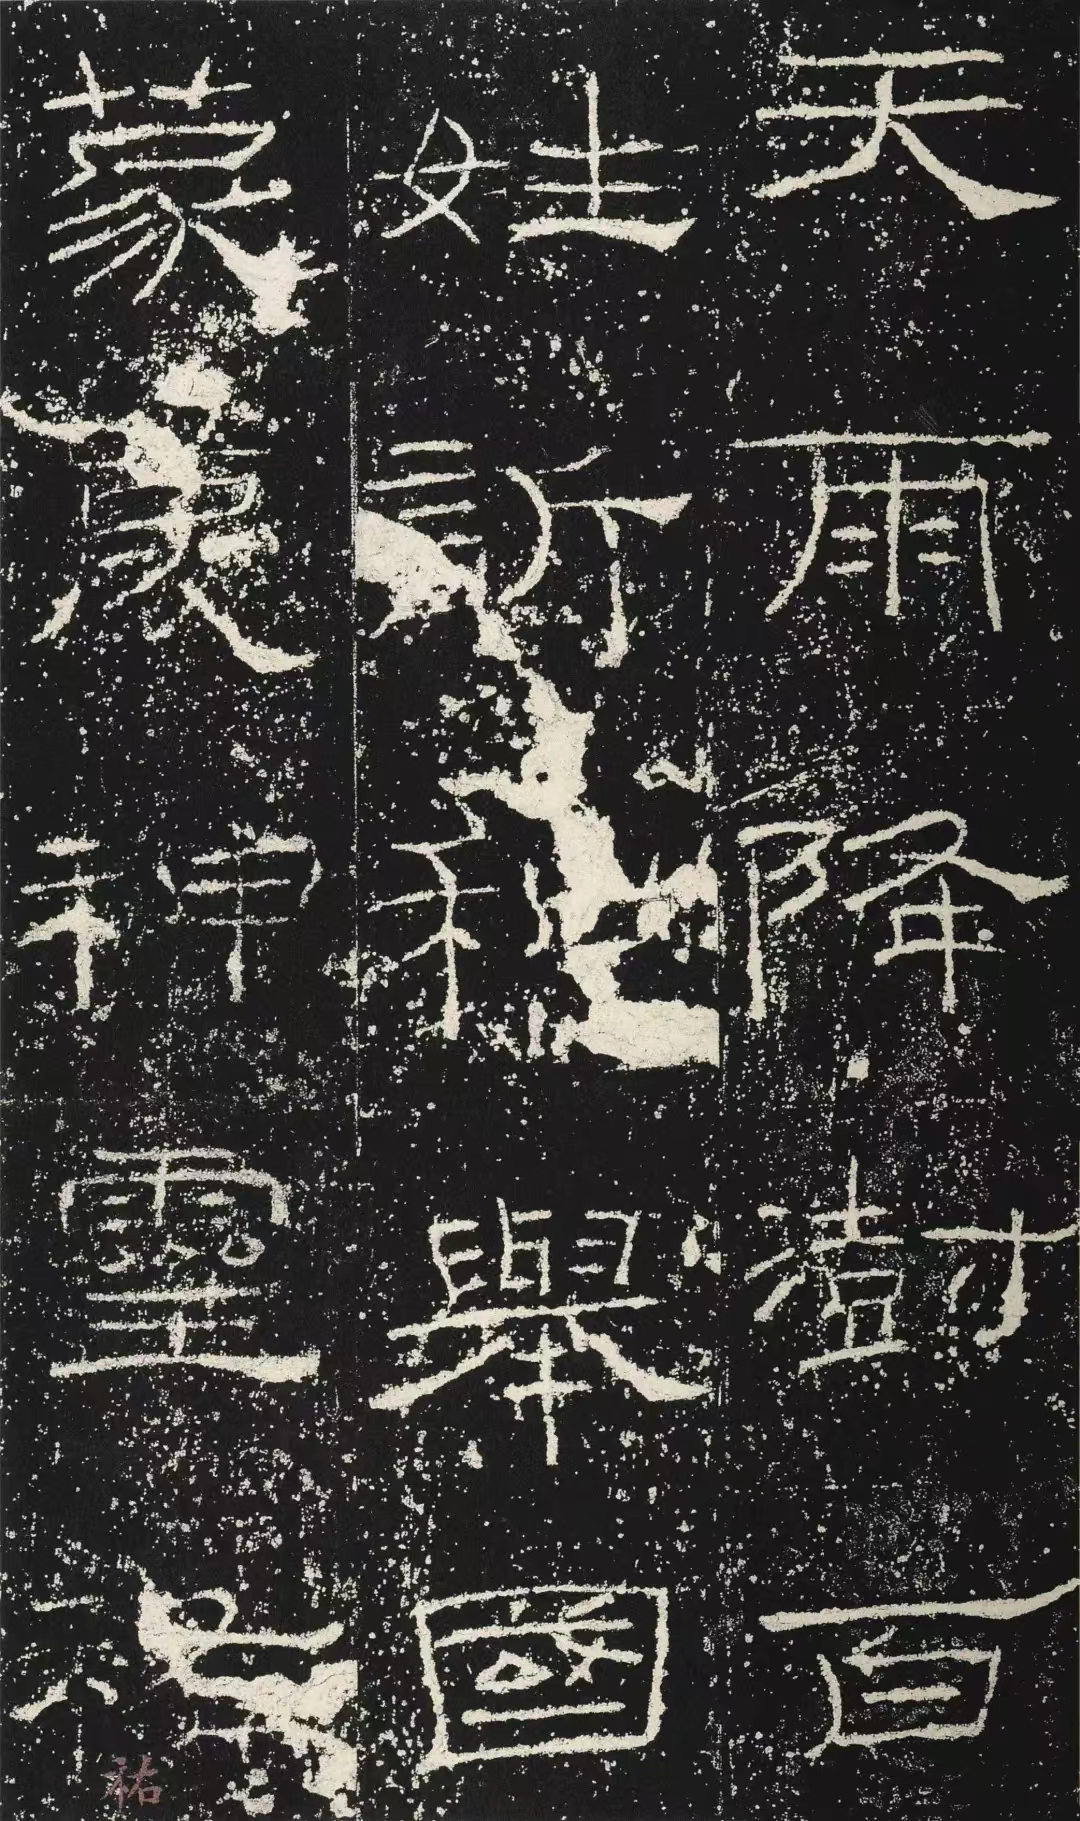 天雨降澍百
姓訢和舉國
蒙慶神靈祐
祐